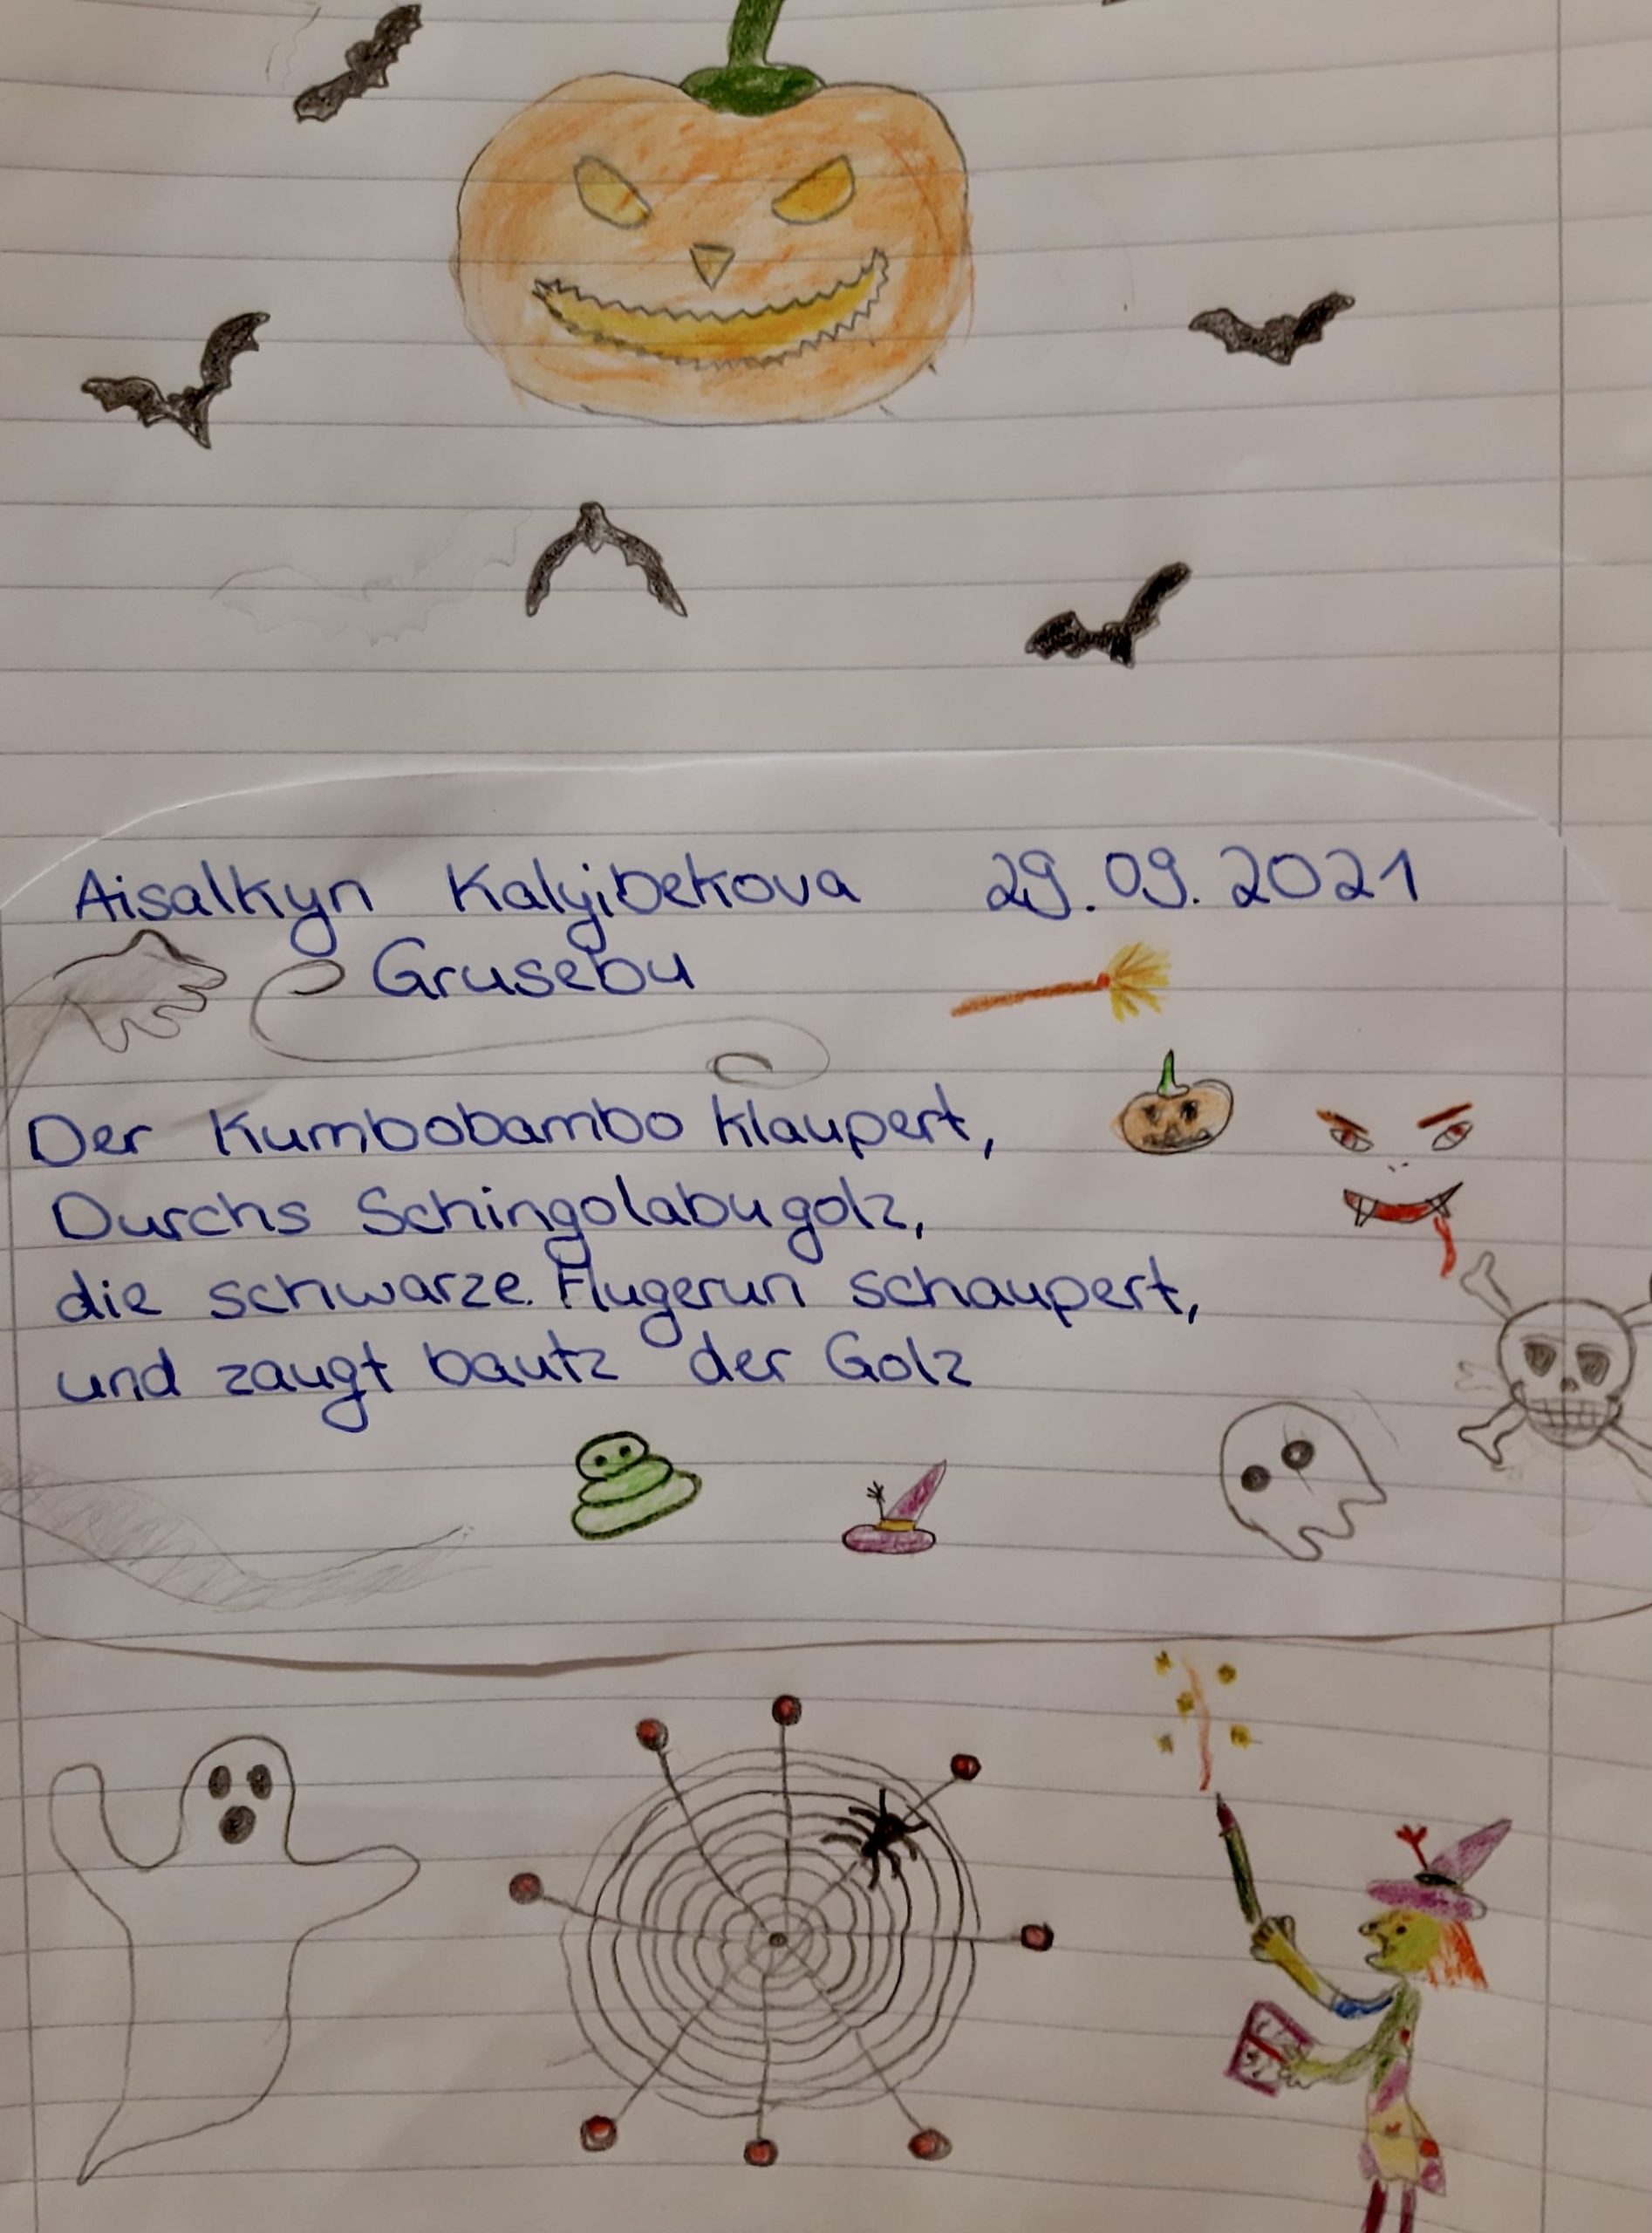 Aisalkyn Kalyibekova 29.09.2021
Grusebu
Der Kumbobambo klaupert,
Durchs Schingolabugolz,
die schwarze Flugerun schaupert,
und zaugt bautz der Golz